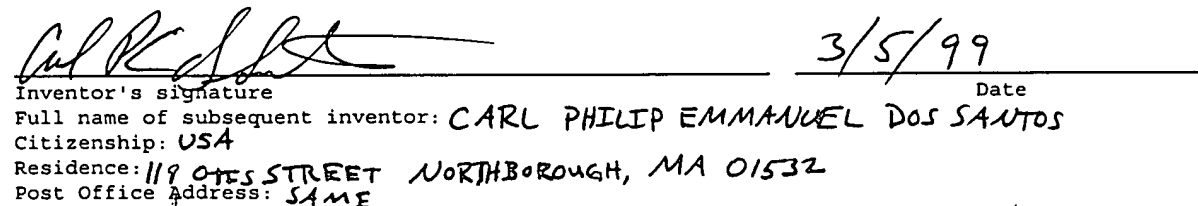 3/5/99
Inventor's signature Date
Full name of subsequent inventor: CARL PHILIP EMMANUEL DOS SANTOS
Citizenship: USA
Residence: 119 OTIS STREET NORTHBOROUGH, MA 01532
Post Office Address: SAME